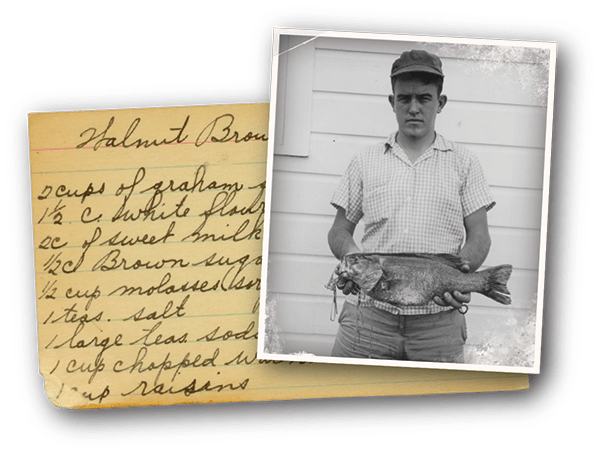 Walnut Brow
2 cups of graham
1½ c. white flour
2c of sweet milk
½c Brown suga
½ cup molasses sor
1 teas. salt
1 large teas. soda
1 cup chopped
1 cup raisins